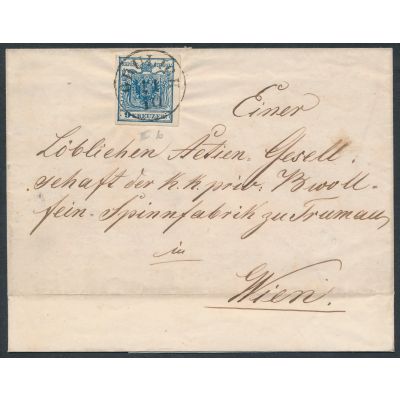 9 KREUZER
Einer
Löblichen Actien-Gesell-
schaft der k.k. priv. Bwoll-
fein-Spinnfabrik zu Trumau
in
Wien.